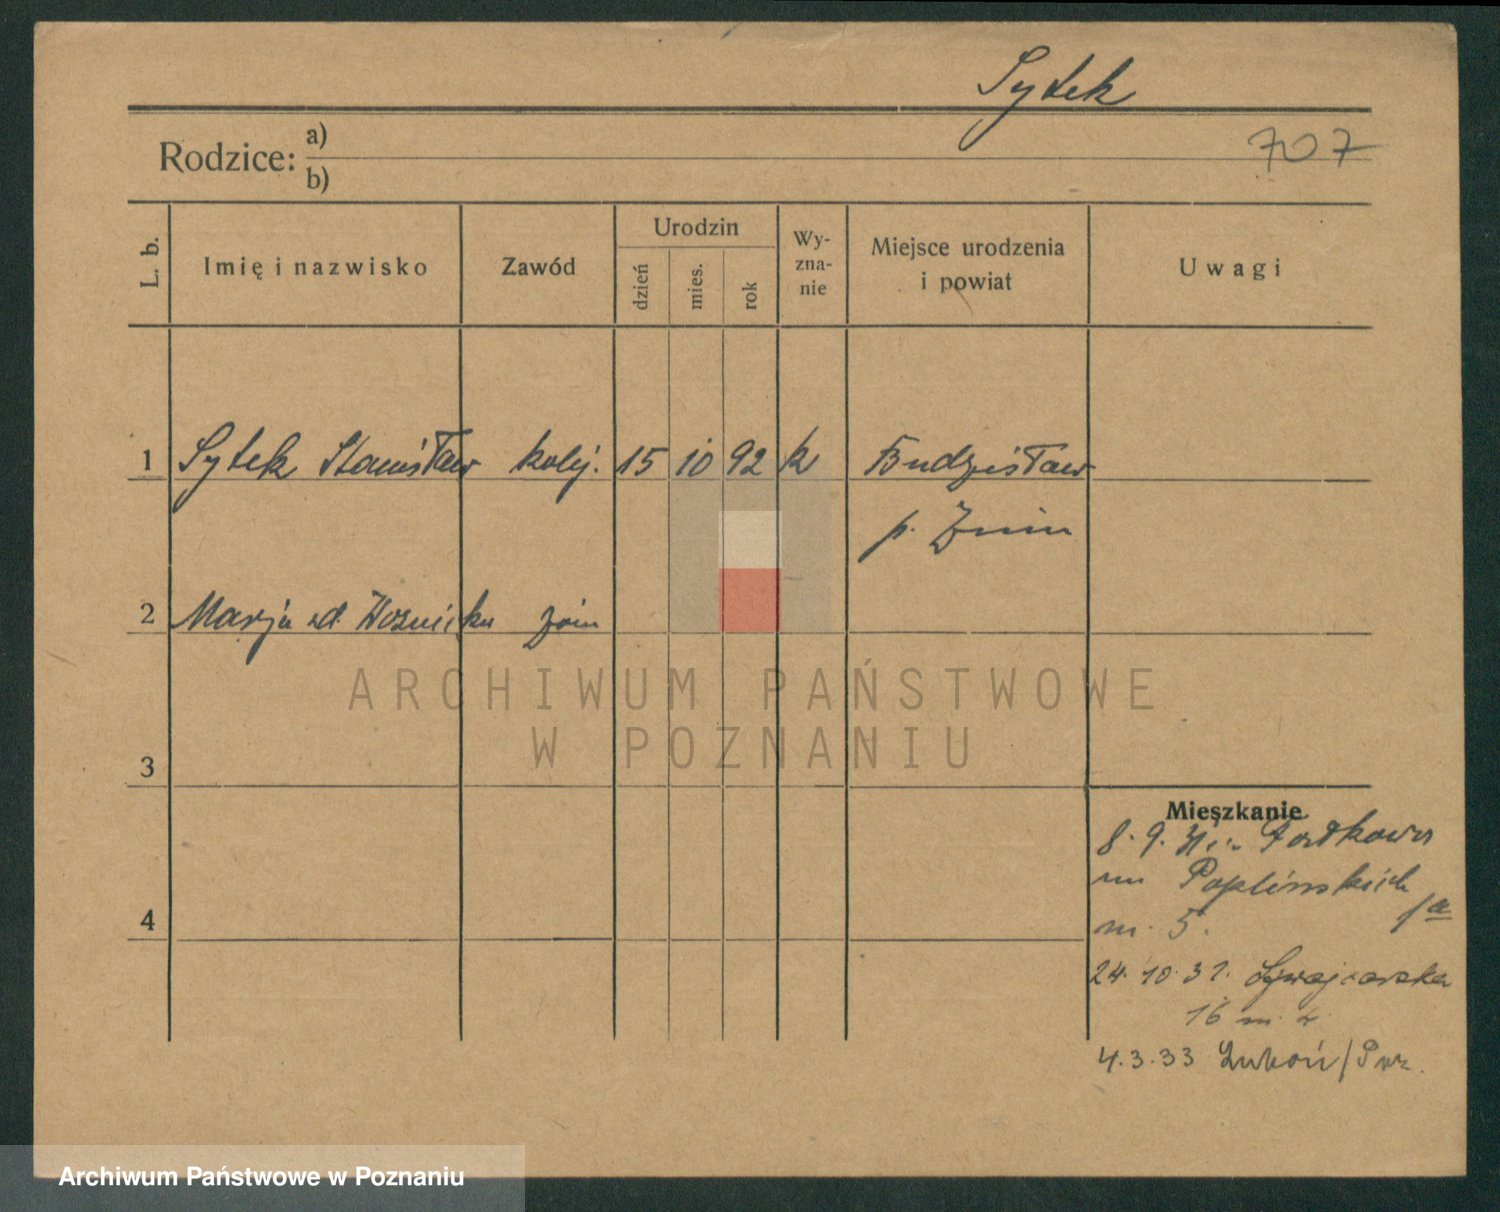 Sytek
707
Rodzice: a)
b)
L. b. Imię i nazwisko Zawód Urodzin dzień mies. rok Wyznanie Miejsce urodzenia i powiat Uwagi
1 Sytek Stanisław kolej. 15 10 92 k Budzisław
p. Żnin
2 Marja zd. Woźnicka
3
Mieszkanie
8. 9. 31
Poplińskich
4
m. 5.
24. 10. 31. Szwajcarska
16 m.
4.3.33 Luboń/Poz.
ARCHIWUM PAŃSTWOWE
W POZNANIU
Archiwum Państwowe w Poznaniu